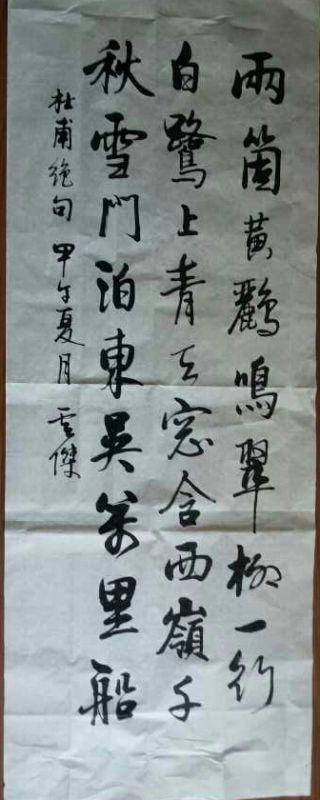 兩箇黃鸝鳴翠柳一行
白鷺上青天窓含西嶺千
秋雪門泊東吳萬里船
杜甫絕句 甲午夏月 雲傑